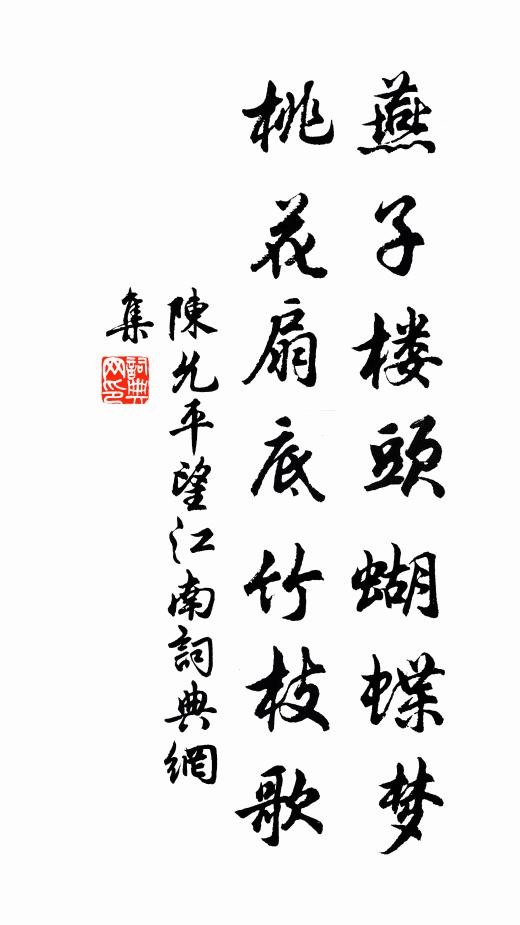 燕子楼頭蝴蝶梦
桃花扇底竹枝歌
陳允平望江南詞典網
集
詞典网印